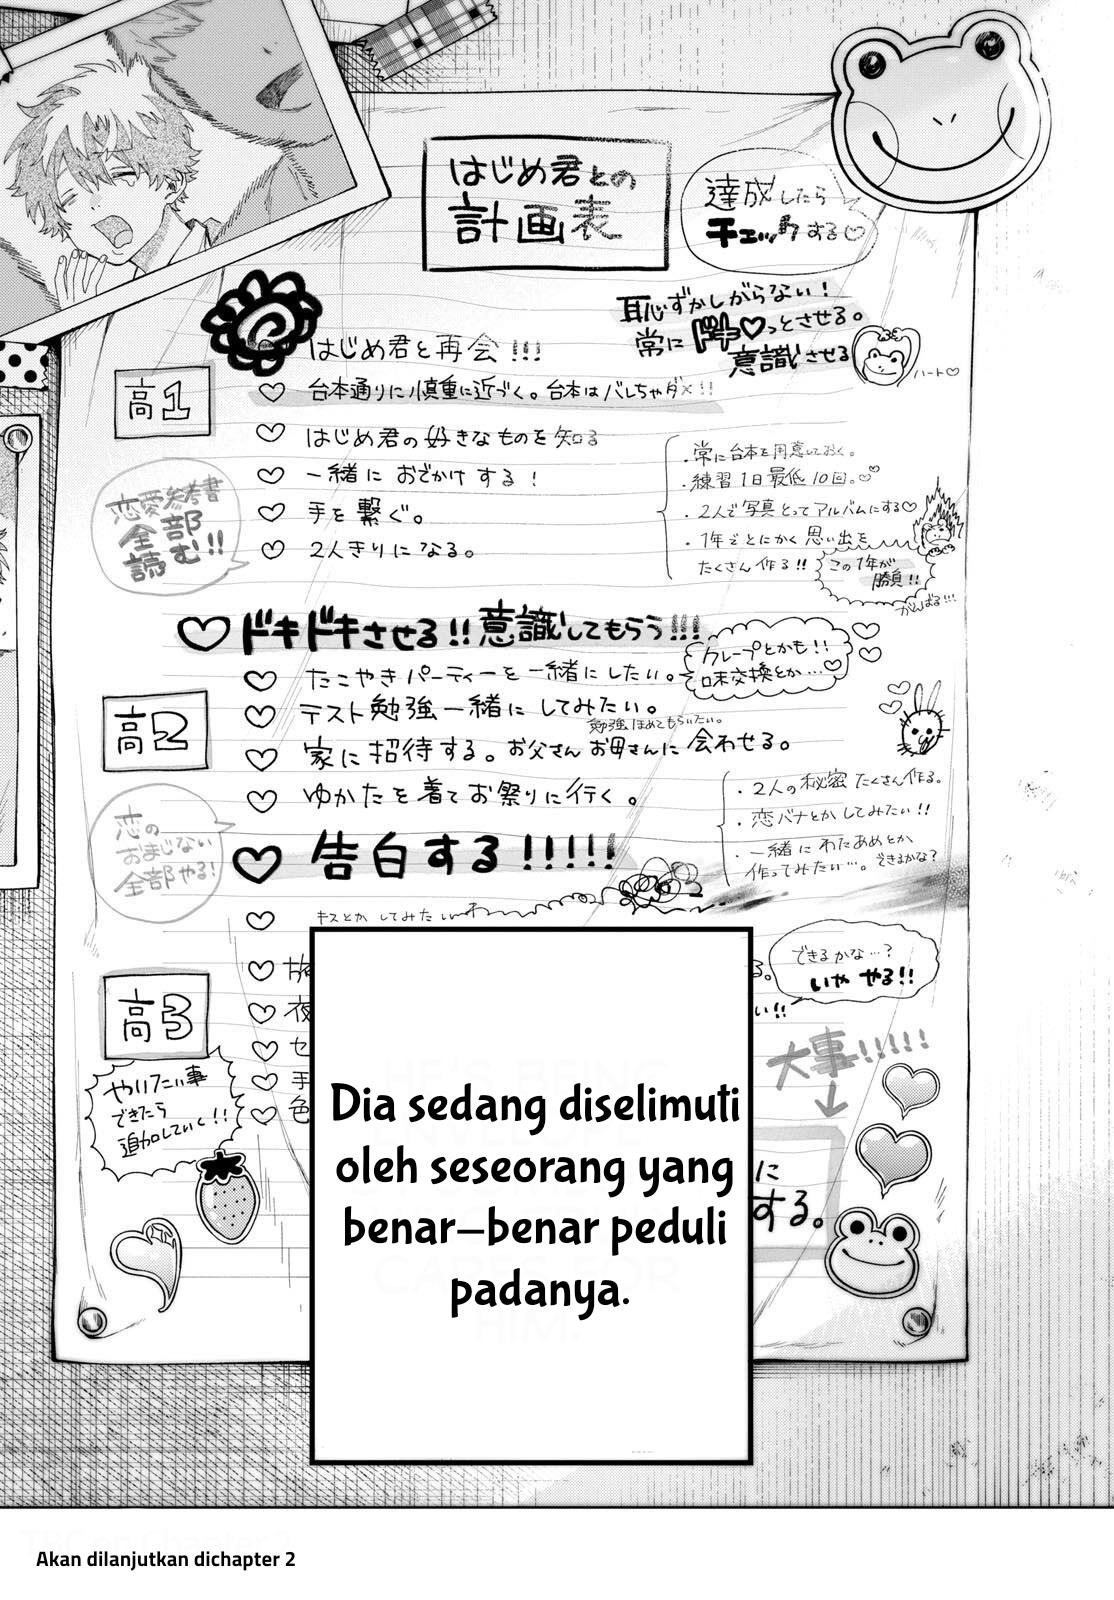 はじめ君との
計画表
達成したら
チェックする♡
恥ずかしがらない！
常にドキ♡っとさせる。
意識させる
ハート♡
はじめ君と再会!!!
高1
♡ 台本通りに慎重に近づく。台本はバレちゃダメ!!
♡ はじめ君の好きなものを知る
♡ 一緒におでかけする！
♡ 手を繋ぐ。
♡ 2人きりになる。
恋愛参考書
全部
読む!!
・常に台本を用意しておく。
・練習1日最低10回。♡
・2人で写真とってアルバムにする♡
・1年ごとにとにかく思い出を
たくさん作る!!
この1年が
勝負!!
がんばる!!!
♡ドキドキさせる!!意識してもらう!!!
♡ たこやきパーティーを一緒にしたい。
クレープとかも!!
味交換とか…♡
♡ テスト勉強一緒にしてみたい。
勉強ほめてもらいたい。
高2
♡ 家に招待する。お父さんお母さんに会わせる。
♡ ゆかたを着てお祭りに行く。
・2人の秘密たくさん作る。
・恋バナとかしてみたい!!
・一緒にわたあめとか
作ってみたい…。できるかな？
恋の
おまじない
全部やる!
♡告白する!!!!!
♡ キスとかしてみたい
できるかな…？
いややる!!
高3
♡
♡ 夜
い!!
♡ セ
♡ 手
♡ 色
大事!!!!!
やりたい事
できたら
追加していく!!
に
する。
Dia sedang diselimuti
oleh seseorang yang
benar-benar peduli
padanya.
Akan dilanjutkan dichapter 2